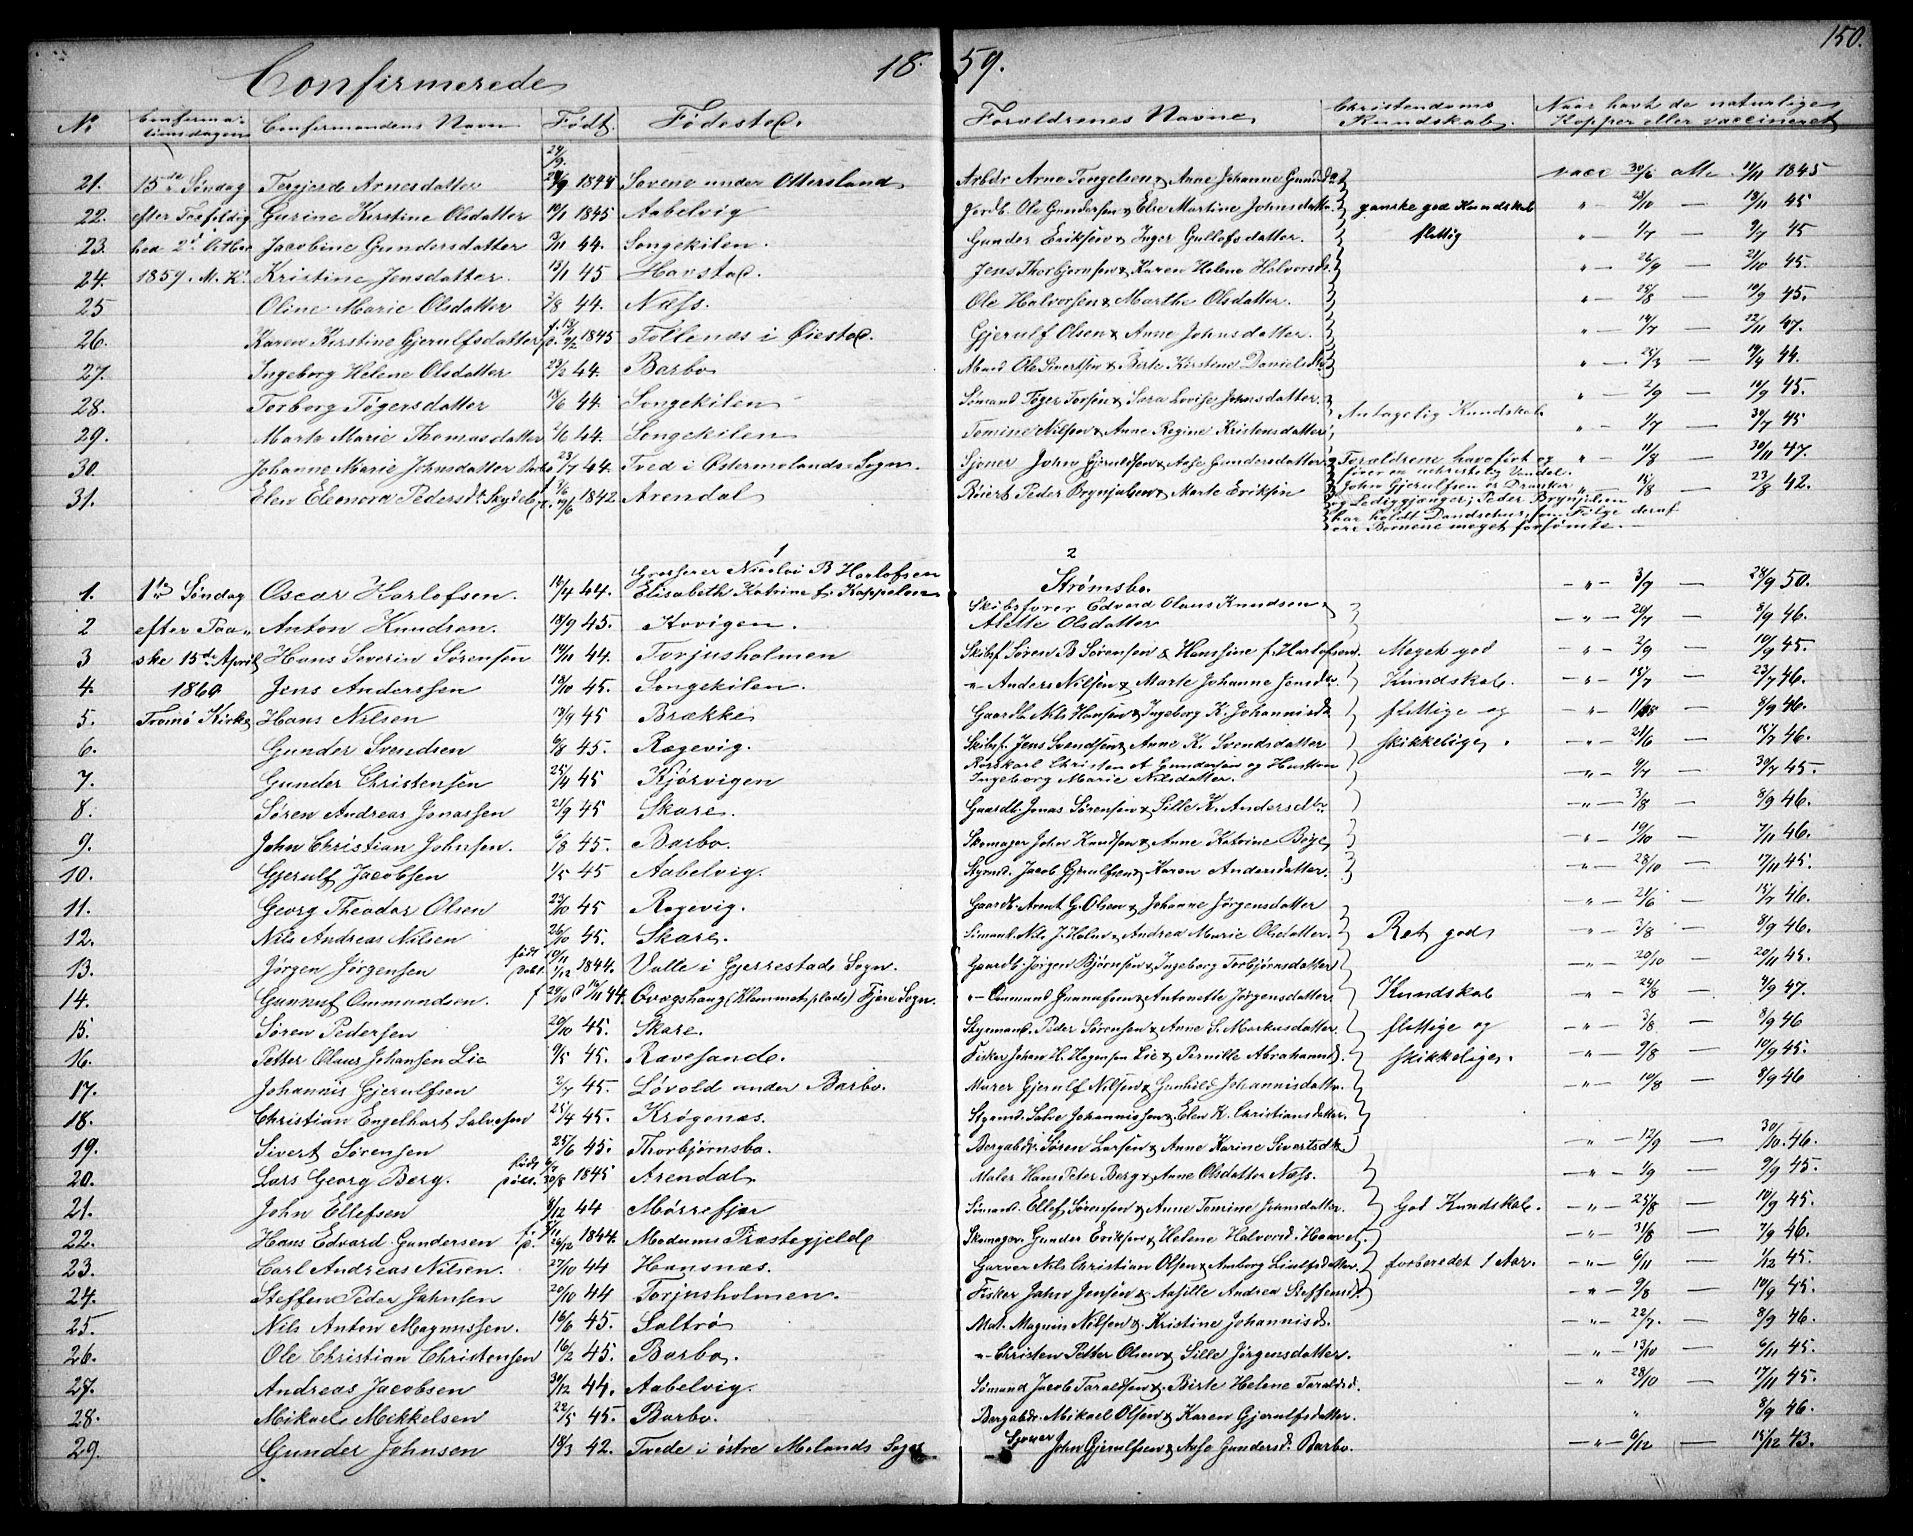 150.
Confirmerede 18 59.
No Confirma- Confirmandens Navn Født. Fødested. Forældrenes Navne Christendoms Naar havt de naturlige
tionsdagen Kundskab. Kopper eller vaccineret
24/9.
21. 15de Søndag Tergjerd Arnesdatter 1844 under Ottersland Arbdr Arne & Anne Johanne vacc 30/6 atte. 11/11 1845
22. efter Gurine Kirstine Olsdatter 10/1 1845 Aabelvig Jordb. Ole Gundersen & Else Martine Johnsdatter ganske god Kundskab " 23/10 — 13/11 45
23. 2. Jacobine Gundersdatter 3/11 44. Songekilen. Gunder Eriksen & Inger Gullofsdatter. flittig " — 1/7 — 9/7 45
24. 1859. M. K. Kristine Jensdatter. 13/1 45 Havstad. Jens Thorbjørnsen & Karen Helene Halvorsdr. " — 26/9 — 21/10 45.
25 Oline Marie Olsdatter 3/8 44. Næss. Ole Halvorsen & Marthe Olsdatter. " — 25/8 — 10/9 45.
26. Karen Kirstine Gjerulfsdatter 1845 i Øiestad. Gjerulf Olsen & Anne Johnsdatter. " — 14/7 — 22/11 47.
27. Ingeborg Helene Olsdatter 23/2 44. Barbo Ole Sivertsen & Birte Kirstine " — 25/3 — 19/4 44.
28. Torborg Tøgersdatter 18/6 44. Songekilen Sømand Tøger Torsen & Sara Lovise Johnsdatter. " — 2/9 — 10/9 45.
Antagelig Kundskab
29. Marte Marie Thomasdatter 2/6 44. Songekilen Nilsen & Anne Regine Kristensdatter " — 1/7 — 30/7 45
30. Johanne Marie Johnsdatter 23/7 44. Tved i Østermolands Sogn. Sjouer John Gjeruldsen & Aase Gundersdatter Forældrene have ført og " — 11/8 — 30/11 47.
fører en uchristelig Vandel.
31. Elen Elenora Pedersdt. 1842 Arendal Peder Brynjulsen & Marte Eriksen John Gjerulfsen er Dranker " — 15/8 — 23/8 42.
og Lediggjænger; Peder Brynjulsen
har holdt Dandsehus, som Følge deraf
ere Børnene meget forsømte.
1 2
Grosserer Nicolai B Herlofsen
1. 1ste Søndag Oscar Herlofsen. 12/4 44. Elisabeth Katrine f. Kappelen Strømsbo. — " — 3/9 — 28/9 50.
Skibsfører Edvard Olaus Knudsen
2 efter Paa- Anton Knudsen. 18/9 45. Kovigen. Alette Olsdatter — " — 20/7 — 8/9 46.
3 ske 15de April Hans Severin Sørensen 14/11 44. Torjusholmen Skibsf. Søren B Sørensen & Hansine f. Herlofsen Meget god " — 2/9 — 10/9 45.
4. 1860 Jens Anderssen 18/10 45. Songekilen. " Anders Nilsen & Marte Johanne Kundskab. " — 15/7 — 23/7 46.
5. Tromø Kirke Hans Nilsen 13/9 45 Brække Gaardb. Nils Hansen & Ingeborg K. flittige og " — — 8/9 46.
6. Gunder Svendsen 6/8 45. Ragevig. Skibsf. Jens Svendsen & Anne K. Svendsdatter skikkelige. " — 21/6 — 15/7 46.
Christen Gundersen og Hustru
7. Gunder Christensen 25/4 45 Kjørvigen Ingeborg Marie Nilsdatter. " — 9/7 — 30/7 45.
8. Søren Andreas Jonassen 21/9 45 Skare. Gaardb. Jonas Sørensen & Sille K. Andersdtr " — 3/8 — 8/9 46.
9. John Christian Johnsen. 6/8 45. Barbo. Skomager John Knudsen & Anne Katrine Bøge " — 19/10 — 7/11 46.
10. Gjerulf Jacobsen 1/5 45 Aabelvig. Styrmd. Jacob Gjerulfsen & Karen Andersdatter. " — 28/10 — 17/11 45.
11. Georg Theodor Olsen 23/10 45 Ragevig. Gaardb. Arent G. Olsen & Johanne Jørgensdatter " — 21/6 — 15/7 46.
12. Nils Andreas Nilsen 26/10 45. Skare. Sømand. Nils J. Holm & Andrea Marie Olsdatter. Ret god " — 3/8 — 8/9 46.
13. Jørgen Jørgensen født 10/11 døbt 1/12 1844. Valle i Gjerrestads Sogn. Gaardb. Jørgen Bjørnsen & Ingeborg Torbjørnsdatter " — 20/10 — 20/11 45.
14. Gunnuf Ommundsen. f 29/10 d 19/11 44. (Klemmetsplads) Fjere Sogn. " Ommund Gunnufsen & Antonette Jørgensdatter. Kundskab " — 24/8 — 4/9 47.
15. Søren Pedersen 20/10 45. Skare. Styrmand. Peder Sørensen & Anne S. Markusdatter. flittige og " — 3/8 — 8/9 46
16. Petter Olaus Johansen Lie 9/5 45. Rævesande. Fisker Johan H. Hagensen Lie & Pernille skikkelige. " — 9/8 — 10/9 45.
17. Johannis Gjerulfsen 2/7 45. Løvold under Barbo. Murer Gjerulf Nilsen & Gunhild Johannisdatter. " — 10/8 — 8/9 46
18. Christian Engelhart Salvesen 25/4 45. Krøgenæs. Styrmd. Salve Johannissen & Elen K. Christiansdatter.
19. Sivert Sørensen 25/6 45. Thorbjørnsbo. Bergabdr. Søren Larsen & Anne Karine " — 12/9 — 30/10. 46.
20. Lars Georg Berg. født døbt. 30/8 1845 Arendal. Maler Hans Peter Berg & Anne Olsdatter Næss. — " — 1/9 — 9/9 45.
21. John Ellefsen 8/12 44 Mørrefjær Sømand. Ellef Sørensen & Anne Tomine Johnsdatter. God Kundskab. — " — 25/8 — 10/9 45.
22. Hans Edvard Gundersen 1844. Modums Præstegjeld Skomager. Gunder Eriksen & Helene " — 31/8 — 7/9 46.
23. Carl Andreas Nilsen. 27/10 44 Hansnæs. Garver Nils Christian Olsen & forberedet 1 Aar. — " — 6/11 — 1/12 45.
24. Steffen Peder Johnsen 20/10 44 Torjusholmen. Fisker John Jensen & Andrea " — 9/8 — 10/9 45.
25. Nils Anton Magnussen. 16/6 45. Saltrø Mat. Magnus Nilsen & Kristine — " — 22/7. — 8/9 46.
26. Ole Christian Christensen 16/2 45. Barbo. " Christen Petter Olsen & Sille Jørgensdatter. " — 13/10 — 6/11 45.
27. Andreas Jacobsen 30/12 44. Aabelvig. Sømand Jacob Taraldsen & Birte Helene Taraldsd. — " 28/10 — 17/11 45.
28. Mikael Mikkelsen 22/5 45. Barbo. Bergabdr. Mikael Olsen & Karen Gjerulfsdatter. " 8/9 46.
29. Gunder Johnsen 18/3 42. Tvede i østre Molands Sogn Sjouer John Gjerulfsen & Aase Gundersd. Barbo. — " — 6/12 — 15/12 43.